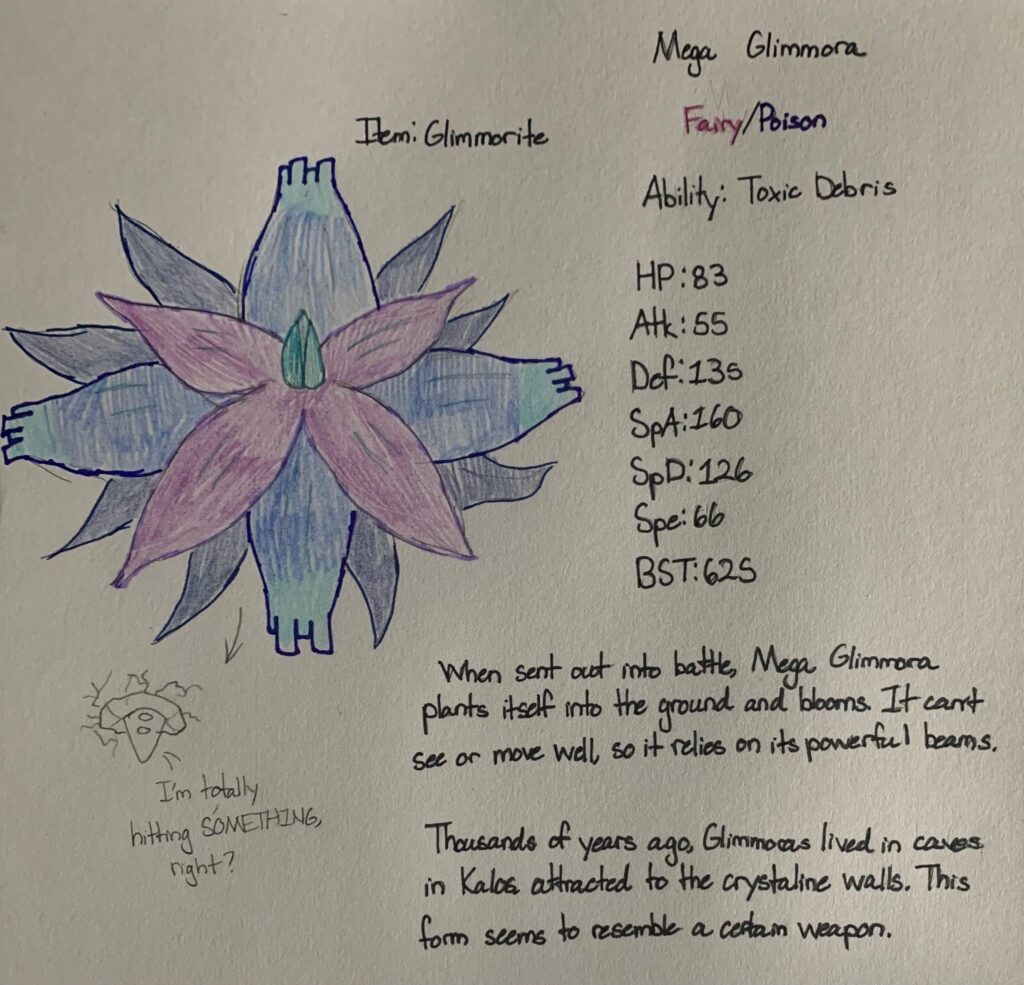 Mega Glimmora
Item: Glimmorite
Fairy/Poison
Ability: Toxic Debris
HP: 83
Atk: 55
Def: 135
SpA: 160
SpD: 126
Spe: 66
BST: 625
When sent out into battle, Mega Glimmora
plants itself into the ground and blooms. It can't
see or move well, so it relies on its powerful beams.
I'm totally
hitting SOMETHING,
right?
Thousands of years ago, Glimmoras lived in caves
in Kalos attracted to the crystaline walls. This
form seems to resemble a certain weapon.